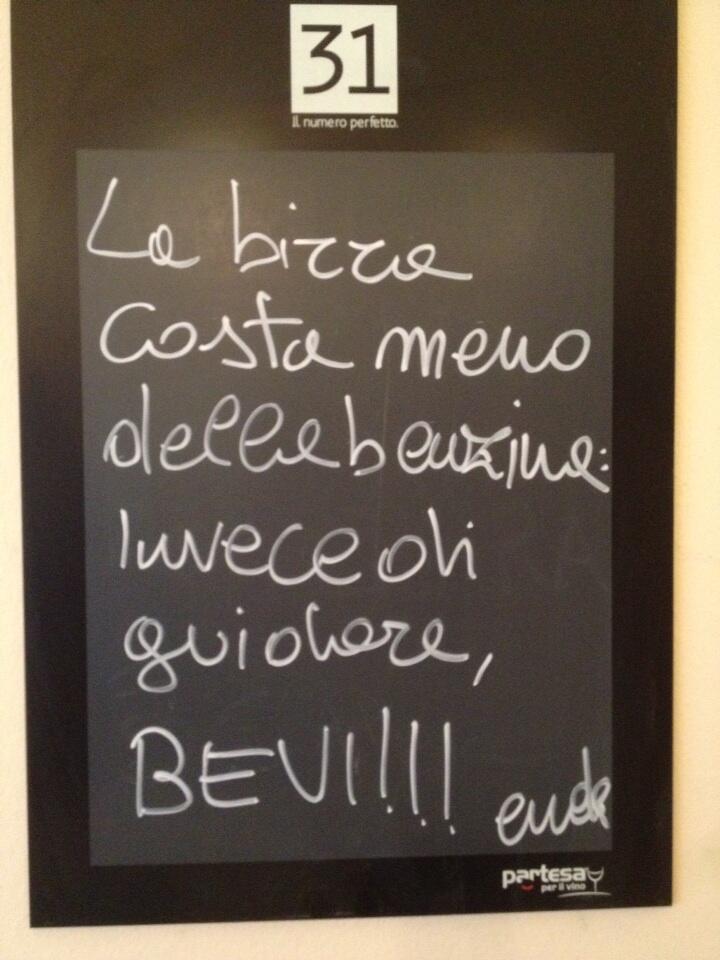 31
Il numero perfetto.
La birra
costa meno
della benzina:
Invece di
guidare,
BEVI!!!!
partesa
per il vino